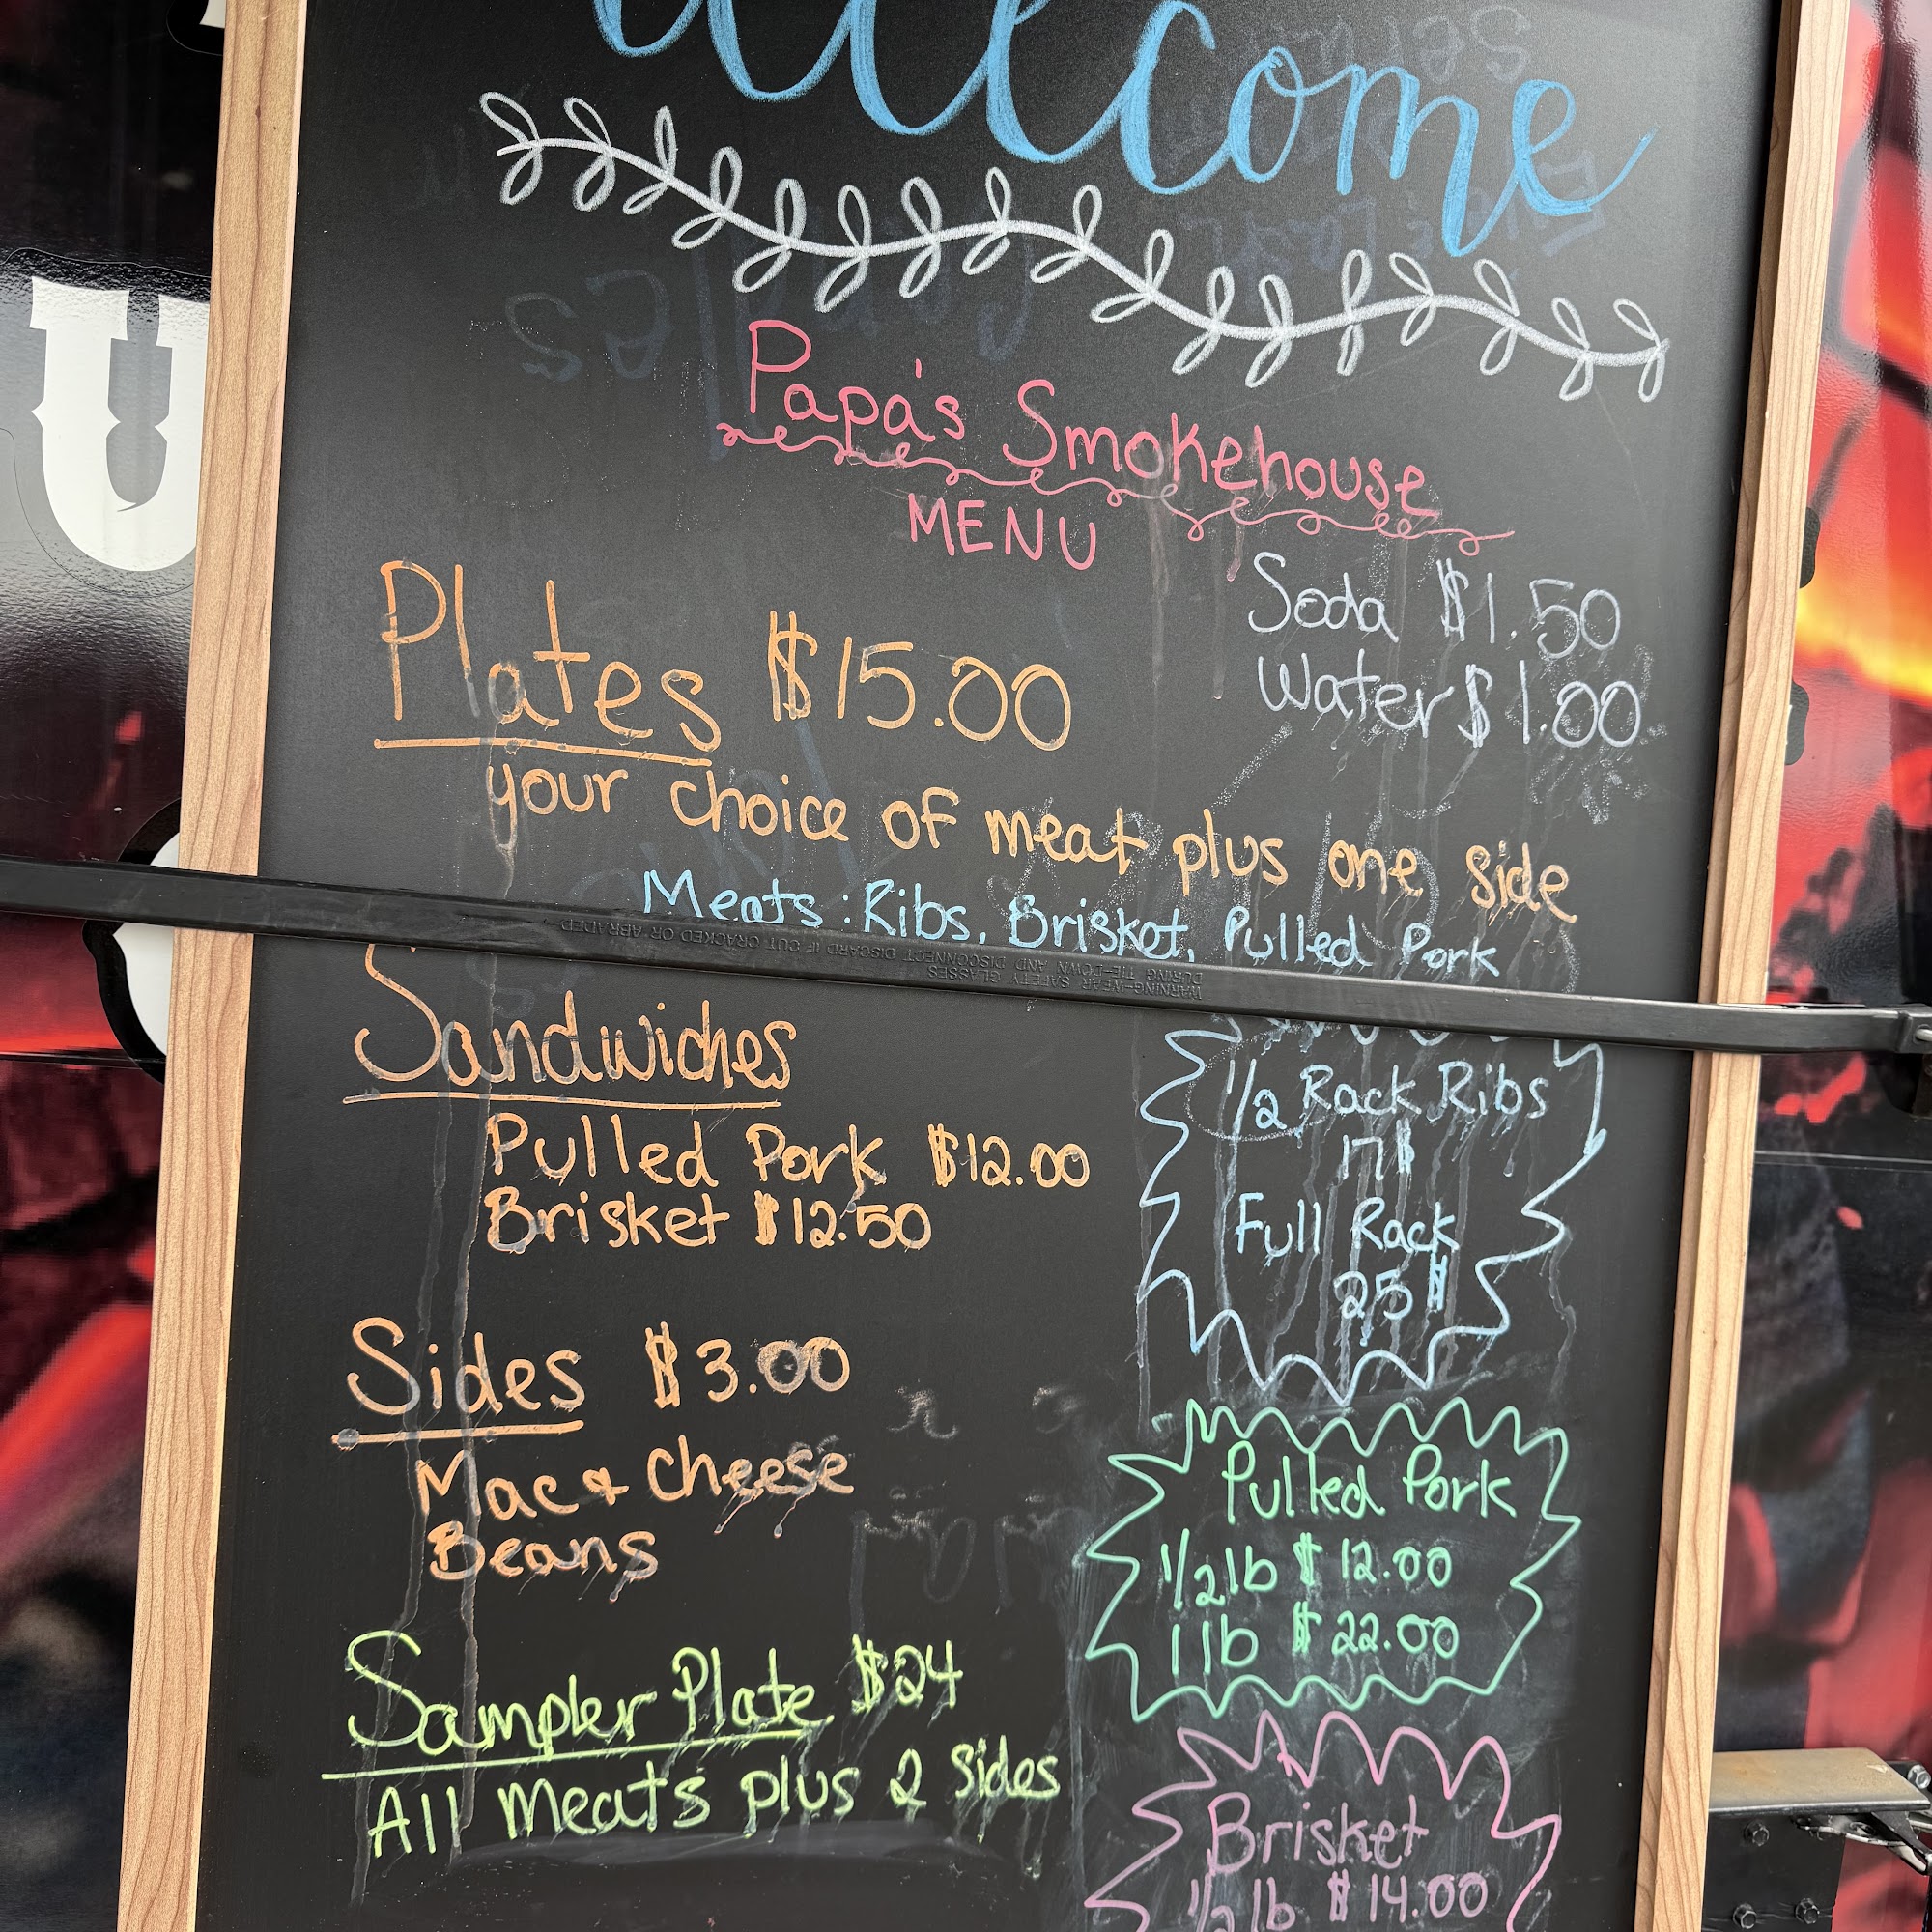 Welcome
Papa's Smokehouse
MENU
Soda $1.50
Water $1.00
Plates $15.00
your choice of meat plus one side
Meats: Ribs, Brisket, Pulled Pork
WARNING-WEAR SAFETY GLASSES
DURING TIE-DOWN AND DISCONNECT DISCARD IF CUT CRACKED OR ABRADED
Sandwiches
Pulled Pork $12.00
Brisket $12.50
1/2 Rack Ribs
17$
Full Rack
25$
Sides $3.00
Mac & Cheese
Beans
Pulled Pork
1/2 lb $12.00
1 lb $22.00
Sampler Plate $24
All Meats plus 2 Sides
Brisket
1/2 lb $14.00
U